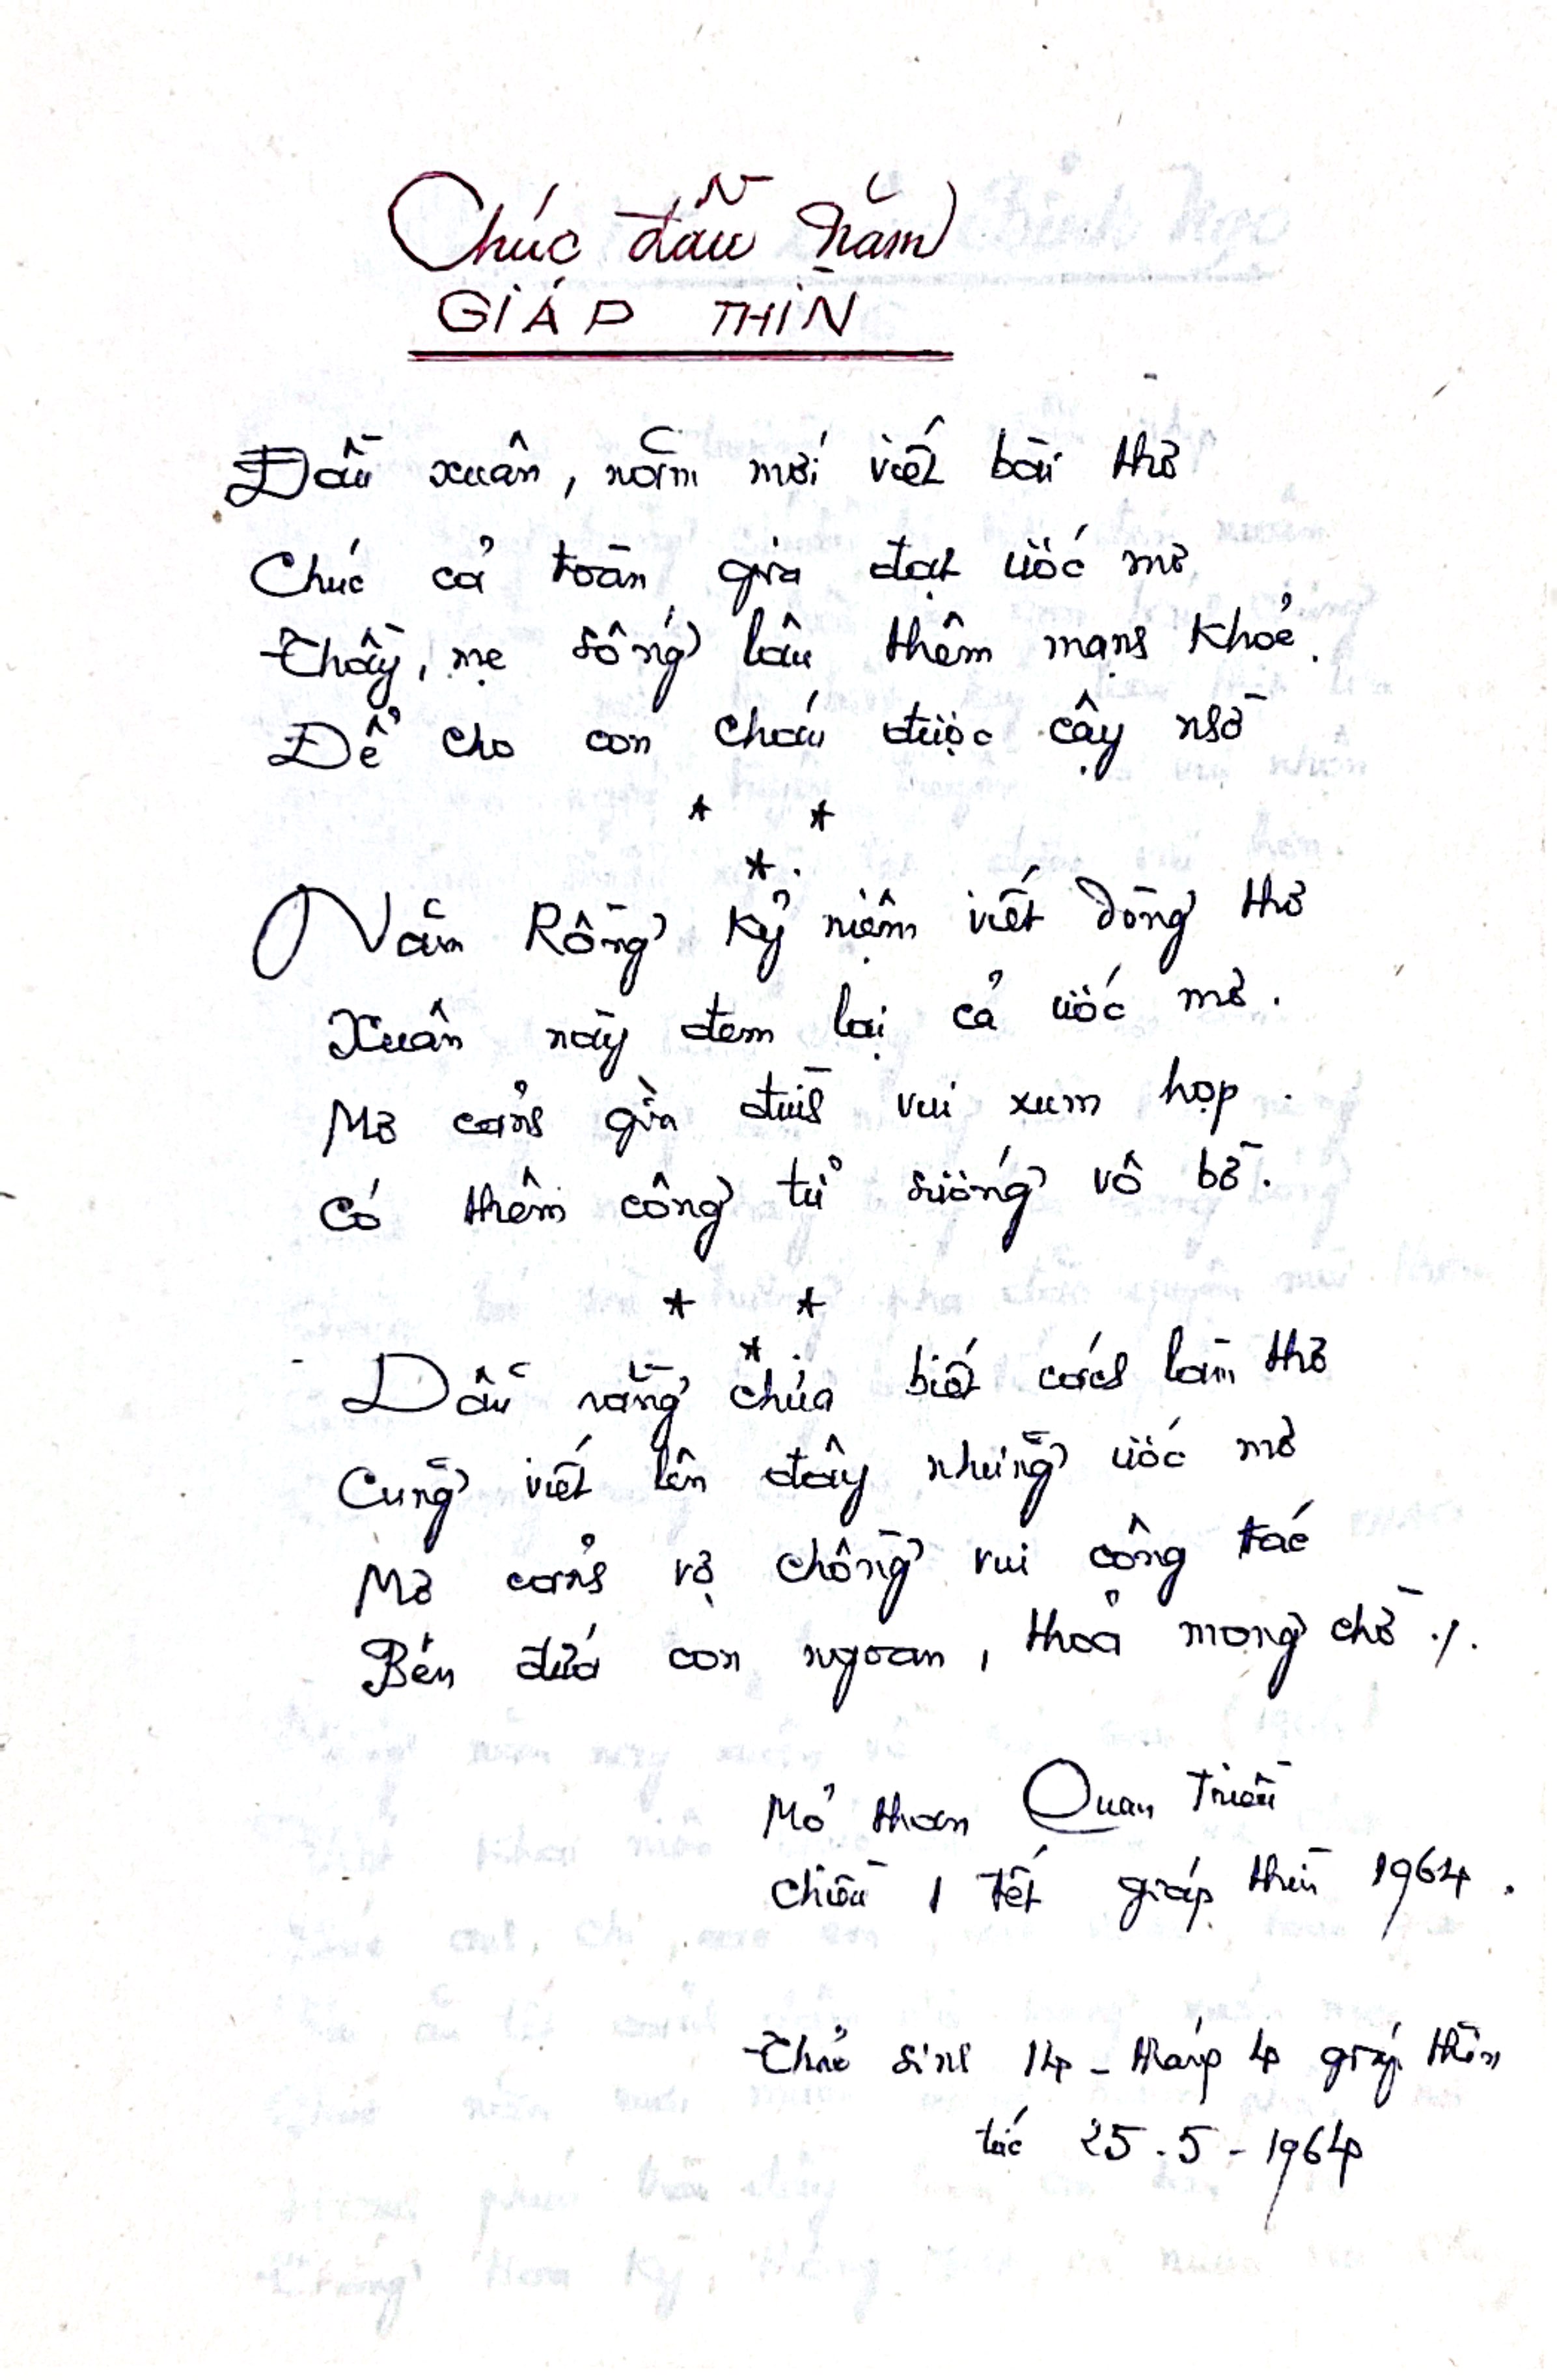 Chúc đầu năm
GIÁP THÌN
Đầu xuân, năm mới viết bài thơ
Chúc cả toàn gia đạt ước mơ
Thầy, mẹ sống lâu thêm mạnh khoẻ.
Để cho con cháu được cậy nhờ
* *
*
Năm Rồng kỷ niệm viết dòng thơ
Xuân này đem lại cả ước mơ.
Mơ cảnh gia đình vui xum họp.
Có thêm công tử sướng vô bờ.
* *
*
Dẫu rằng chửa biết cách làm thơ
Cũng viết lên đây những ước mơ
Mơ cảnh vợ chồng vui công tác
Bốn đứa con ngoan, thoả mong chờ ./.
Mỏ than Quan Triều
chiều 1 tết giáp thìn 1964.
Thuỷ sinh 14 - tháng 4 giáp thìn
tức 25-5-1964